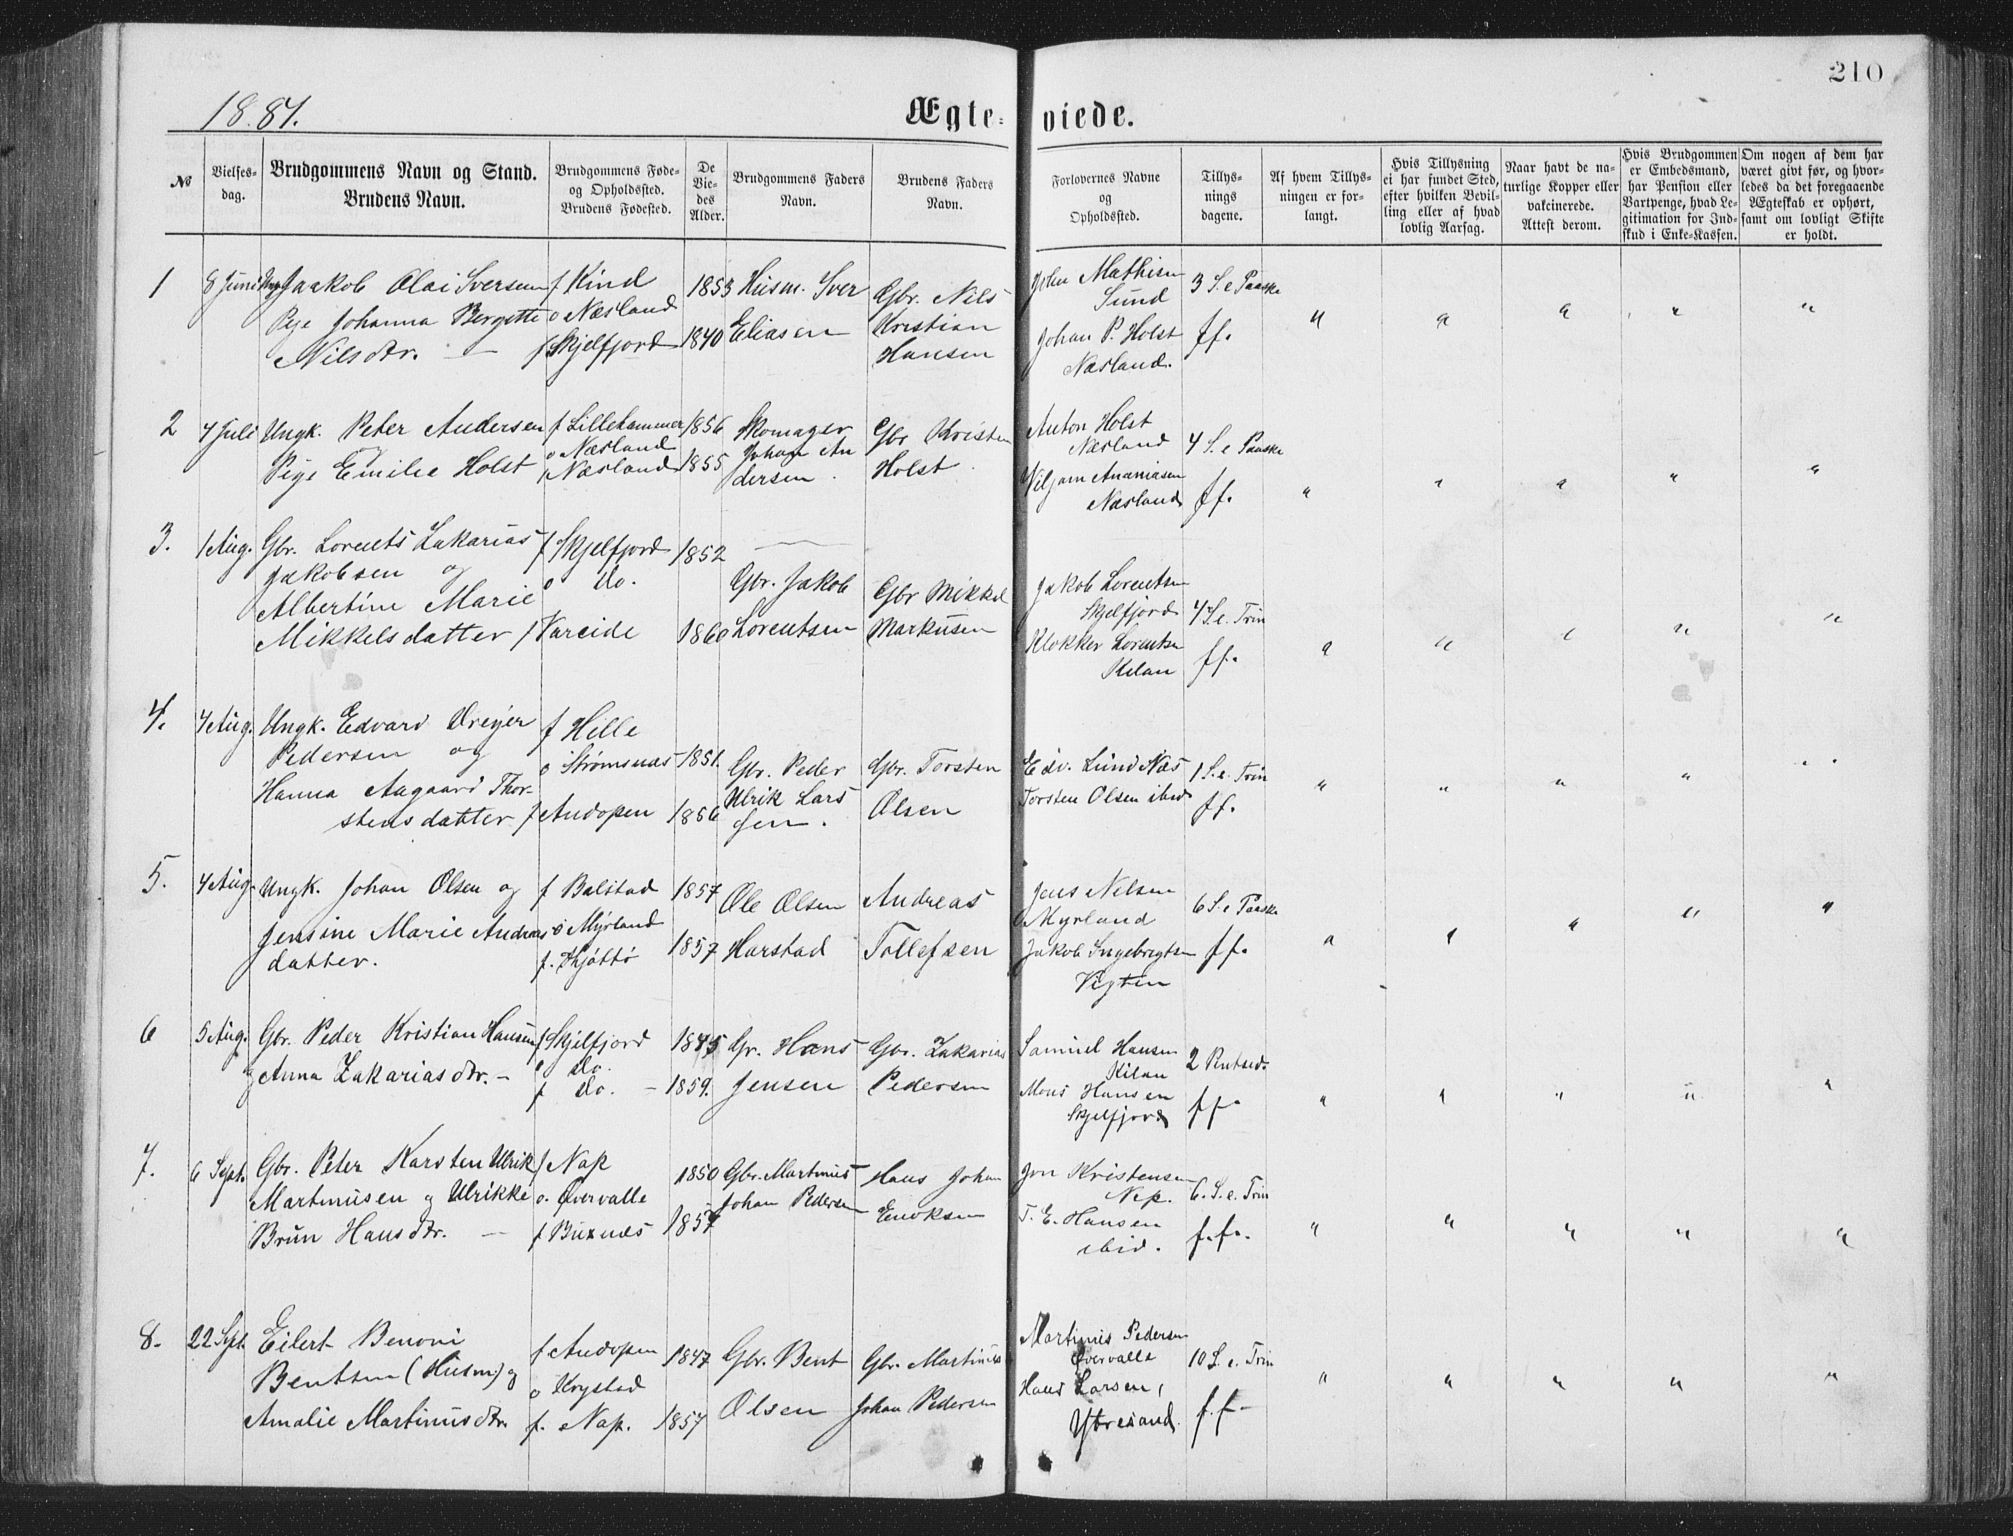 210
1881.
Ægteviede.
No
Vielses-
dag.
Brudgommens Navn og Stand.
Brudens Navn.
Brudgommens Føde-
og Opholdssted.
Brudens Fødested.
De
Vie-
des
Alder.
Brudgommens Faders
Navn.
Brudens Faders
Navn.
Forlovernes Navne
og
Opholdssted.
Tillys-
nings
dagene.
Af hvem Tillys-
ningen er for-
langt.
Hvis Tillysning
ei har fundet Sted,
efter hvilken Bevil-
ling eller af hvad
lovlig Aarsag.
Naar havt de na-
turlige Kopper eller
vakcinerede.
Attest derom.
Hvis Brudgommen
er Embedsmand,
har Pension eller
Vartpenge, hvad Le-
gitimation for Ind-
skud i Enke-Kassen.
Om nogen af dem har
været givt før, og hvor-
ledes da det foregaaende
Ægteskab er ophørt,
samt om lovligt Skifte
er holdt.
1
8 Juni
Jaakob Olai Iversen
Pige Johanna Bergitte
Nilsdtr. —
f Kind
o Næsland
f Skjelfjord
1853
1840
Husm. Iver
Eliasen
Gbr. Nils
Kristian
Hansen
John Mathisen
Sund
Johan P. Holst
Næsland.
3 S. e Paaske
ff.
" " " " "
2
4 Juli
Ungk. Peter Andersen
Pige Emilie Holst
f Lillehammer
o Næsland
f Næsland
1856
1855
Skomager
Johan An
dersen
Gbr Kristen
Holst
Anton Holst
Næsland
Viljam Ananiasen
Næsland
4 S. e Paaske
ff.
" " " " "
3.
1 Aug.
Gbr. Lorents Zakarias
Jakobsen og
Albertine Marie
Mikkelsdatter
f Skjelfjord
o do.
f Vareide
1852
1860
Gbr. Jakob
Lorentsen
Gbr Mikkel
Markusen
Jakob Lorentsen
Skjelfjord
Klokker Lorentsen
Kilan
4 S. e. Trin
ff.
" " " " "
4.
4 Aug.
Ungk. Edvard Dreyer
Pedersen og
Hanna Aagaard Thor-
stensdatter
f Helle
o Strømsnæs
f Andopen
1851.
1856
Gbr. Peder
Ulrik Lars
sen.
Gbr. Torsten
Olsen
Edv. Lund Næs
Torsten Olsen ibid
1 S. e. Trin
ff.
" " " " "
5.
4 Aug.
Ungk. Johan Olsen og
Jensine Marie Andreas
datter.
f Balstad
o Myrland
f.
1857
1857
Ole Olsen
Harstad
Andreas
Tollefsen
Jens Nelsen
Myrland
Jakob Ingebregtsen
Vigten
6 S. e Paaske
ff.
" " " " "
6
5 Aug.
Gbr. Peder Kristian Hansen
og Anna Zakariasdtr. –
f Skjelfjord
o do.
f do. –
1845
1859.
Gbr. Hans
Jensen
Gbr. Zakarias
Pedersen
Samuel Hansen
Kilan
Mons Hansen
Skjelfjord
2 Pintsed.
ff.
" " " " "
7.
6 Sept.
Gbr. Peter Karsten Ulrik
Martinusen og Ulrikke
Brun Hansdtr. —
f Nap
o. Øvervalle
f Buxnæs
1850
1857
Gbr. Martinus
Johan Pedersen
Hans Johan
Enoksen
Jon Kristensen
Nap.
T. E. Hansen
ibid.
6. S. e. Trin
f.f.
" " " " "
8.
22 Sept.
Eilert Benoni
Bentsen (Husm) og
Amalie Martinusdtr.
f Andopen
o Krystad
f. Nap.
1847
1857
Gbr. Bent
Olsen
Gbr. Martinus
Johan Pedersen
Martinus Pedersen
Øvervalle
Hans Larsen,
Ytresand.
10 S. e. Trin
f.f.
" " " " "